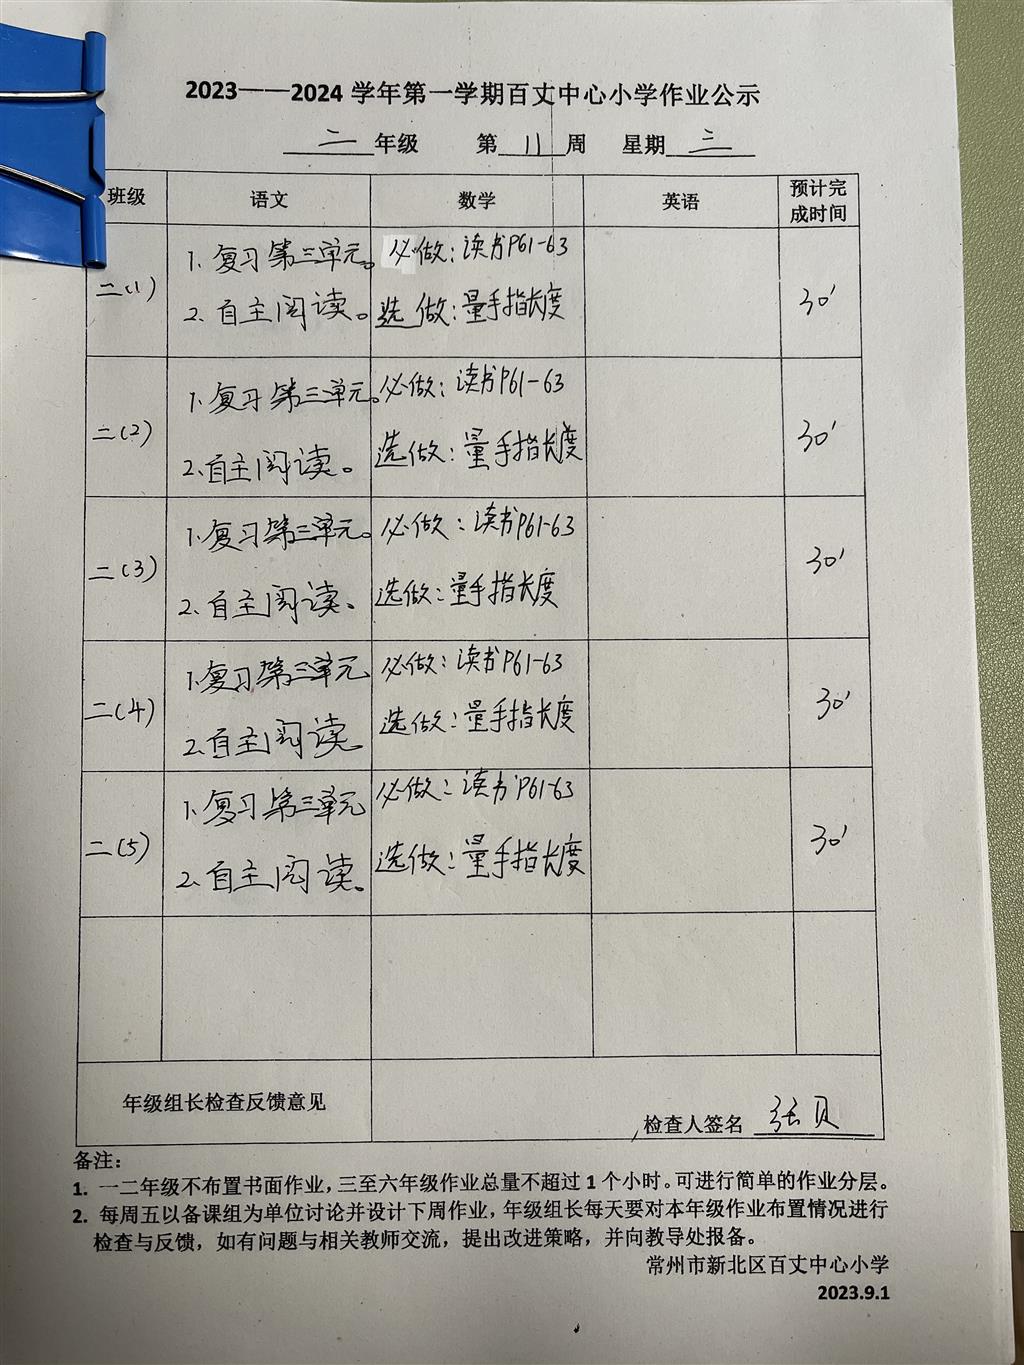 2023——2024 学年第一学期百丈中心小学作业公示
二 年级 第 11 周 星期 三
班级 语文 数学 英语 预计完成时间
二(1) 1. 复习第三单元。 必做：读书P61-63 30'
2. 自主阅读。 选做：量手指长度
二(2) 1. 复习第三单元。 必做：读书P61-63 30'
2. 自主阅读。 选做：量手指长度
二(3) 1. 复习第三单元。 必做：读书P61-63 30'
2. 自主阅读。 选做：量手指长度
二(4) 1. 复习第三单元 必做：读书P61-63 30'
2. 自主阅读 选做：量手指长度
二(5) 1. 复习第三单元 必做：读书P61-63 30'
2. 自主阅读。 选做：量手指长度
年级组长检查反馈意见
检查人签名 张贝
备注：
1. 一二年级不布置书面作业，三至六年级作业总量不超过 1 个小时。可进行简单的作业分层。
2. 每周五以备课组为单位讨论并设计下周作业，年级组长每天要对本年级作业布置情况进行
检查与反馈，如有问题与相关教师交流，提出改进策略，并向教导处报备。
常州市新北区百丈中心小学
2023.9.1